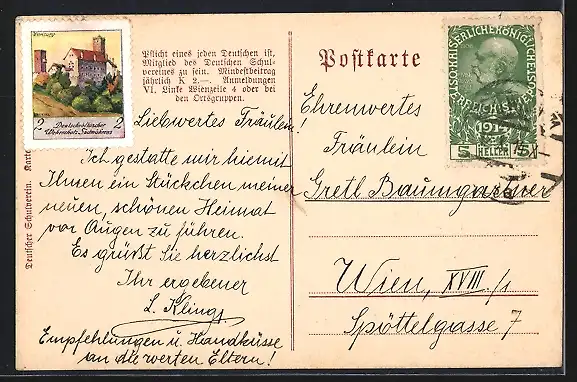 2 2
Deutschvölkischer
Wehrschatz Südmährens
Pflicht eines jeden Deutschen ist,
Mitglied des Deutschen Schul-
vereines zu sein. Mindestbeitrag
jährlich K 2.—. Anmeldungen
VI. Linke Wienzeile 4 oder bei
den Ortsgruppen.
Deutscher Schulverein. Karte
Liebwertes Fräulein!
Ich gestatte mir hiemit
Ihnen ein Stückchen meiner
neuen, schönen Heimat
vor Augen zu führen.
Es grüßt Sie herzlichst
Ihr ergebener
L. Kling
Empfehlungen u. Handküsse
an die werten Eltern!
Postkarte
1914
5 HELLER 5
Ehrenwertes
Fräulein
Gretl Baumgartner
Wien, XVIII./1
Spöttelgasse 7